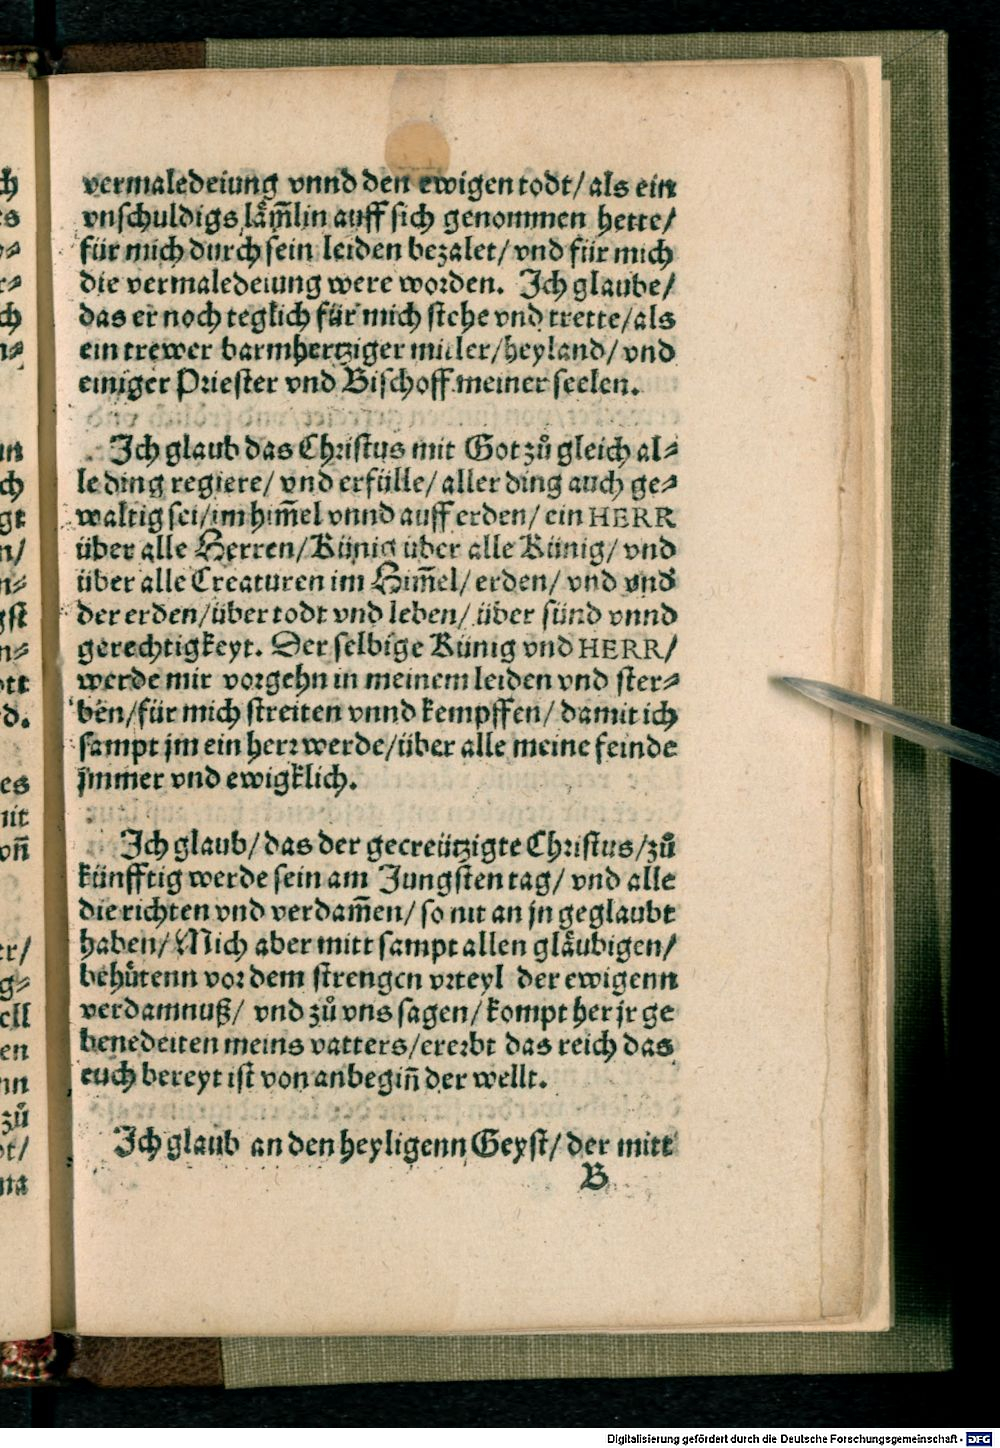 vermaledeiung vnnd den ewigen todt/ als ein
vnschuldigs låm̃lin auff sich genommen hette/
für mich durch sein leiden bezalet/ vnd für mich
die vermaledeiung were worden. Ich glaube/
das er noch teglich für mich stehe vnd trette/als
ein trewer barmhertziger mitler/heyland/ vnd
einiger Priester vnd Bischoff meiner seelen.
Ich glaub das Christus mit Got zů gleich al⸗
le ding regiere/ vnd erfülle/ aller ding auch ge⸗
waltig sei/im him̃el vnnd auff erden/ ein HERR
über alle Herren/Künig über alle Künig/ vnd
über alle Creaturen im Him̃el/ erden/ vnd vnd
der erden/über todt vnd leben/ über sünd vnnd
gerechtigkeyt. Der selbige Künig vnd HERR/
werde mir vorgehn in meinem leiden vnd ster⸗
ben/für mich streiten vnnd kempffen/ damit ich
sampt jm ein herr werde/über alle meine feinde
jmmer vnd ewigklich.
Ich glaub/ das der gecreützigte Christus/zů
künfftig werde sein am Jungsten tag/ vnd alle
die richten vnd verdam̃en/ so nit an jn geglaubt
haben/ Mich aber mitt sampt allen glåubigen/
behůtenn vor dem strengen vrteyl der ewigenn
verdamnuß/ vnd zů vns sagen/ kompt her jr ge
benedeiten meins vatters/ererbt das reich das
euch bereyt ist von anbegiñ der wellt.
Ich glaub an den heyligenn Geyst/ der mitt
B
Digitalisierung gefördert durch die Deutsche Forschungsgemeinschaft - DFG